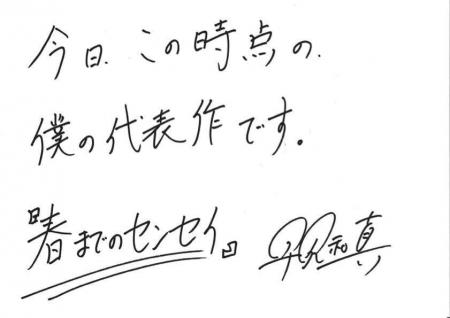 今日、この時点の、
僕の代表作です。
『春までのセンセイ』 早見和真